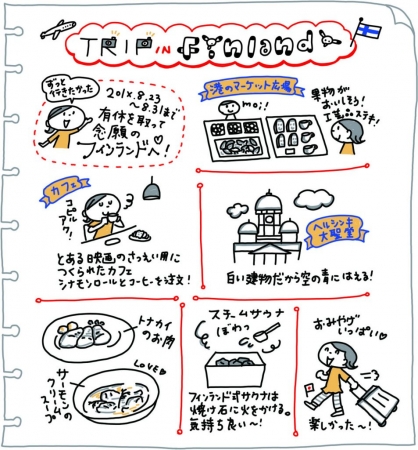 TRIP IN Finland
ずっと
行きたかった
201X.8.23
～8.31まで
有休を取って
念願の
フィンランドへ！
港のマーケット広場
moi!
果物が
おいしそう！
工芸品もステキ！
カフェ
コピ
ルアク！
とある映画のさつえい用に
つくられたカフェ
シナモンロールとコーヒーを注文！
ヘルシンキ
大聖堂
白い建物だから空の青にはえる！
トナカイ
のお肉
LOVE
サーモンの
クリーム
スープ
スチームサウナ
ぼわっ
フィンランド式サウナは
焼け石に水をかける。
気持ち良い～！
おみやげ
いっぱい
楽しかった～！